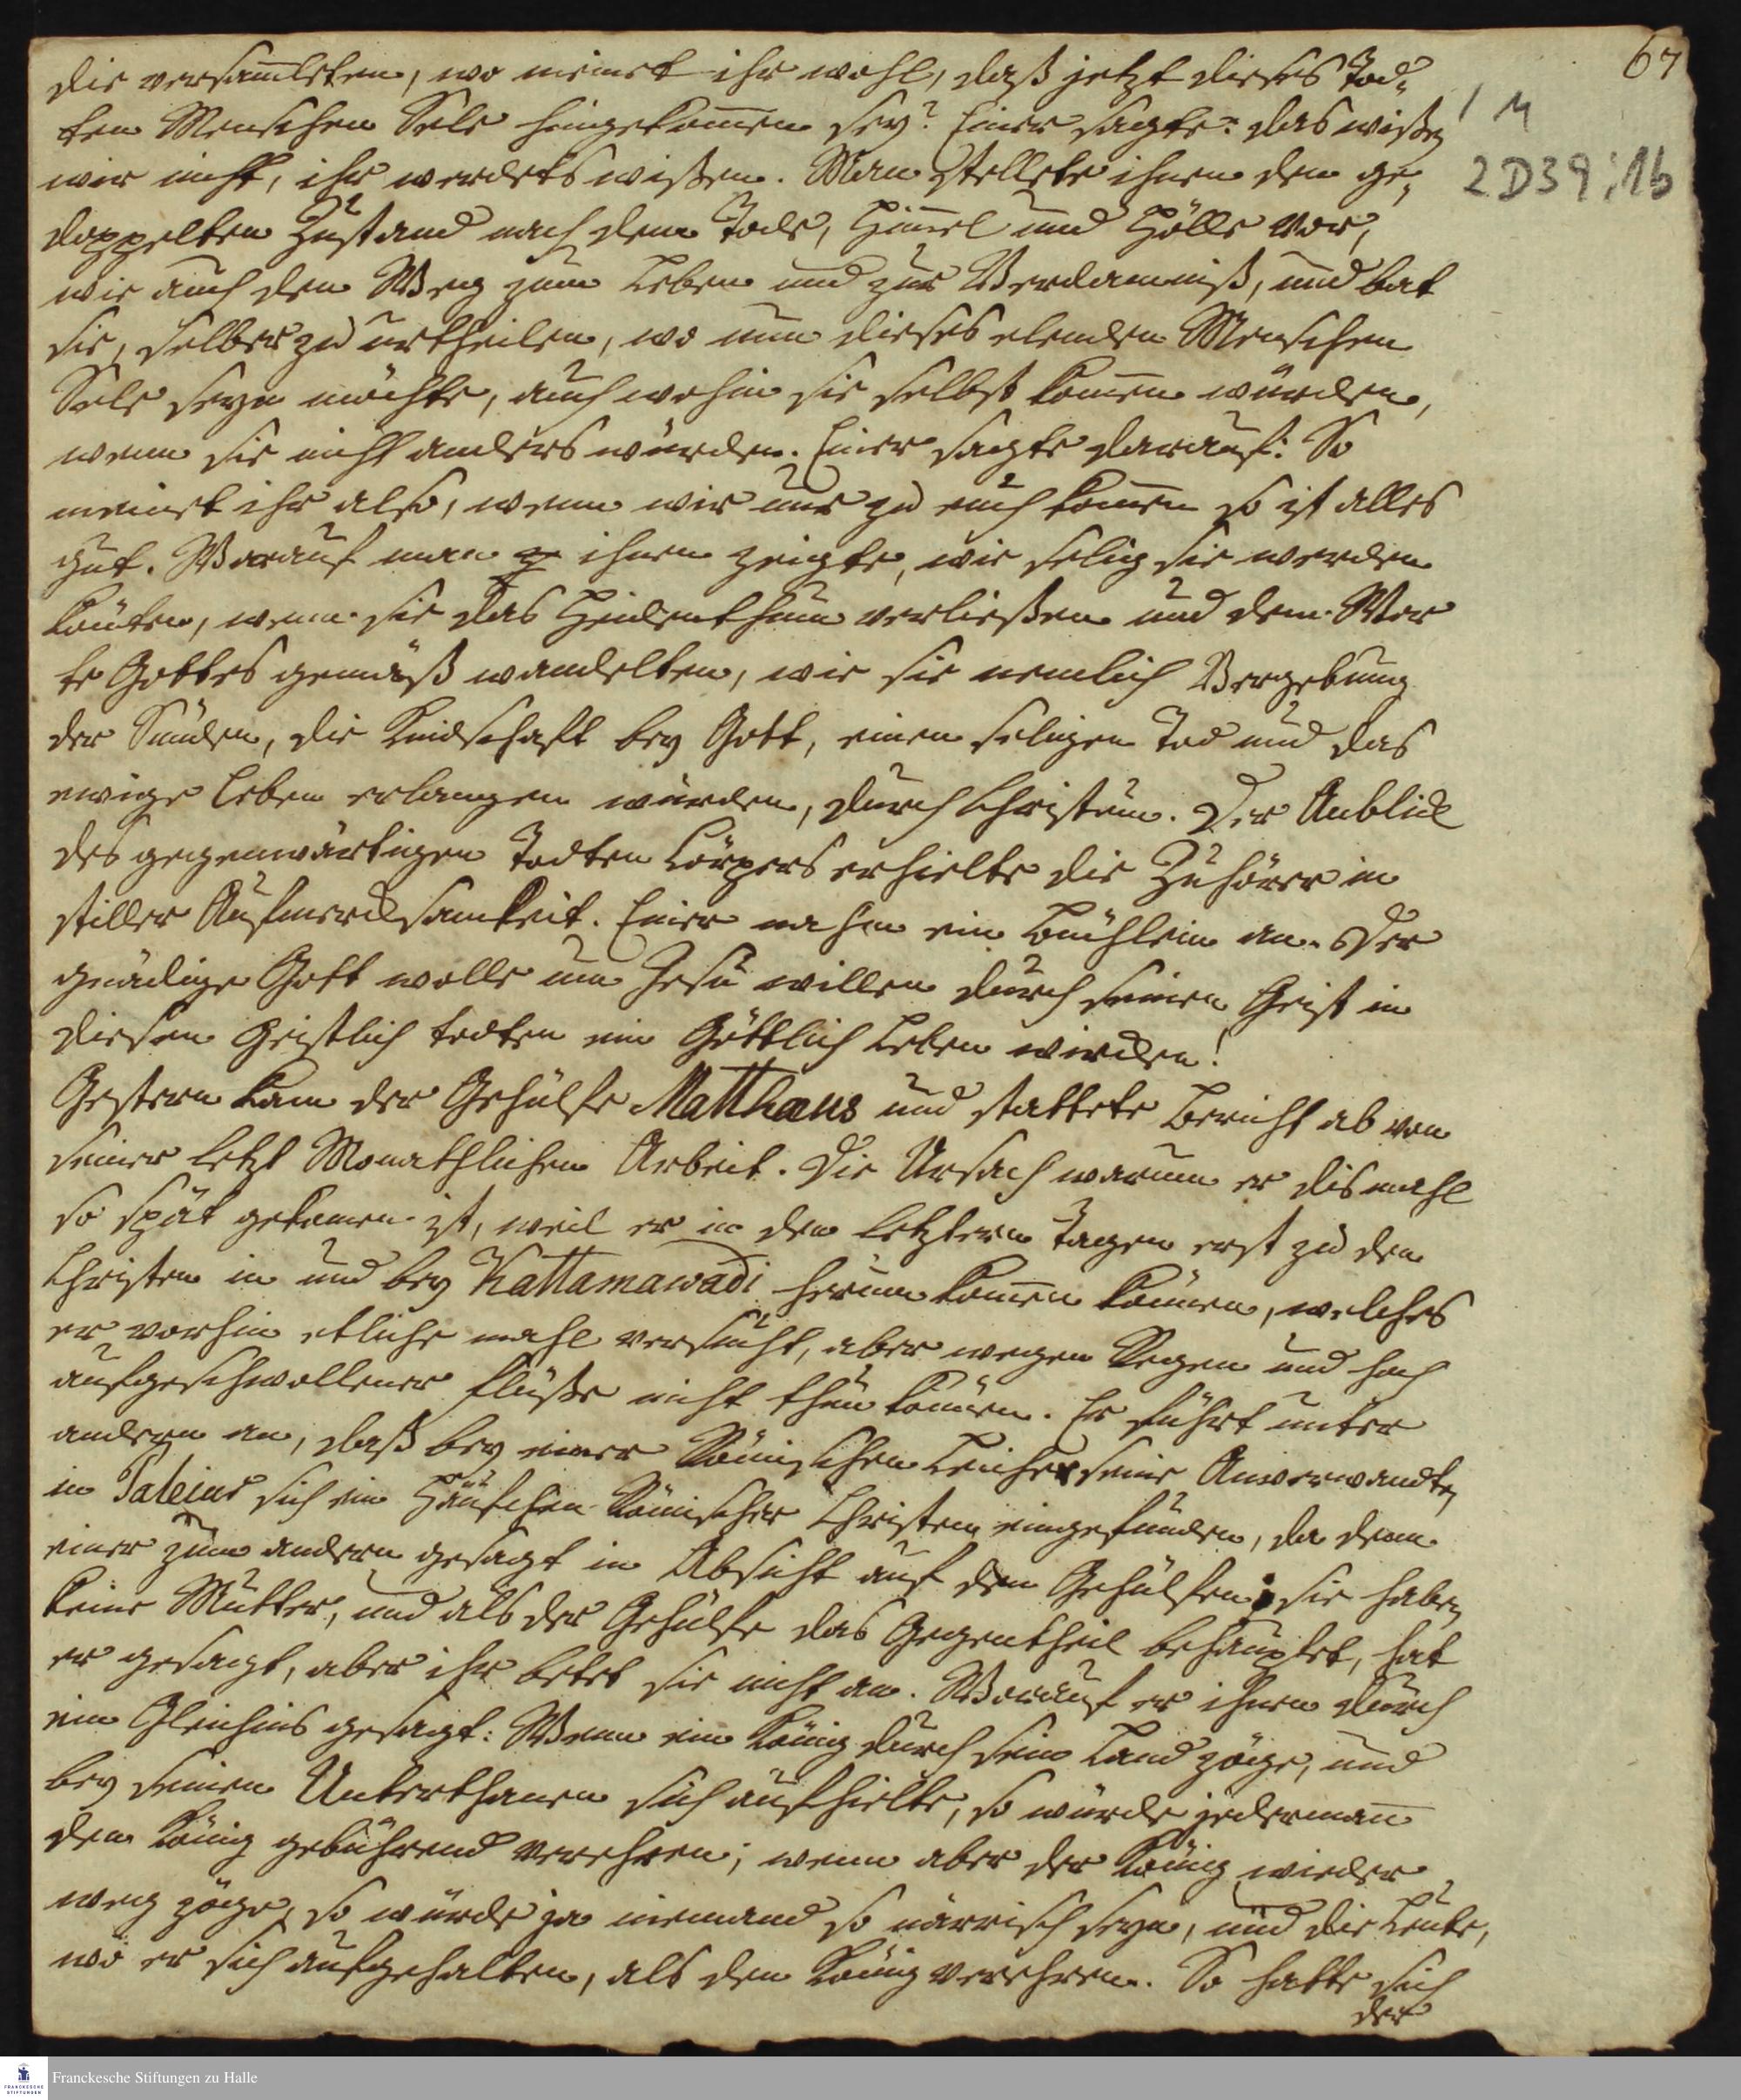 67
1 M
2 D39:16
die versam̄leten, wo meinet ihr wohl, daß jetzt dieses Tod-
ten Menschen Sele hingekom̄en sey? Einer sagte: das wißen
wir nicht, ihr werdets wißen. Man stellete ihnen den ge-
doppelten Zustand nach dem Tode, Him̄el und Hölle vor,
wie auch den Weg zum Leben und zur Verdamniß, und bat
sie, selber zu urtheilen, wo nun dieses elenden Menschen
Sele seyn möchte, auch wohin sie selbst kom̄en würden,
wenn sie nicht anders würden. Einer sagte darauf: So
meinet ihr also, wenn wir nur zu euch kom̄en so ist alles
gut. Worauf man ihnen zeigte, wie selig sie werden
kön̄ten, wenn sie das Heidenthum verließen und dem Wor
te Gottes gemäß wandelten, wie sie nemlich Vergebung
der Sünden, die Kindschaft bey Gott, einen seligen Tod und das
ewige Leben erlangen würden, durch Christum. Der Anblick
des gegenwärtigen Todten Cörpers erhielte die Zuhörer in
stiller Aufmercksamkeit. Einer nahm ein Büchlein an. Der
gnädige Gott wolle um Jesu willen durch seinen Geist in
diesen Geistlich todten ein Göttlich Leben wircken!
Gestern kam der Gehülfe Matthaeus und stattete Bericht ab von
seiner letzt Monathlichen Arbeit. Die Ursach warum er dismahl
so spät gekomen ist, weil er in den letztern Tagen erst zu den
Christen in und bey Kattamawadi herum kom̄en können, welches
er vorhin etliche mahl versucht, aber wegen Regen und hoch
aufgeschwollener Flüße nicht thun können. Er führt unter
andern an, daß bey einer Römischen Leiche seine Anverwandten
in sich ein Häufchen Römischer Christen eingefunden, da denn
einer zum andern gesagt in Absicht auf den Gehülfen: sie haben
keine Mutter, und als der Gehülfe das Gegentheil behauptet, hat
er gesagt, aber ihr betet sie nicht an. Worauf er ihnen durch
ein Gleichnis gesagt: Wenn ein König durch sein Land zöge, und
bey seinen Unterthanen sich aufhielte, so würde jederman̄
den König gebührend verehren; wenn aber der König wieder
weg zöge, so würde ja niemand so närrisch seyn, und die Leute,
wo er sich aufgehalten, als den König verehren. So hatte sich
der
Franckesche Stiftungen zu Halle
FRANCKESCHE STIFTUNGEN